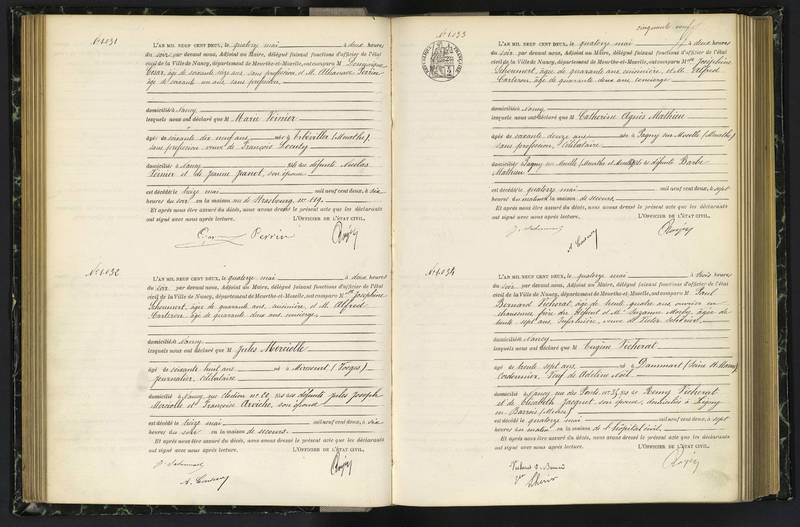 No 1031
L'AN MIL NEUF CENT DEUX, le quatorze mai à deux heures
du soir par devant nous, Adjoint au Maire, délégué faisant fonctions d'officier de l'état
civil de la Ville de Nancy, département de Meurthe-et-Moselle, ont comparu M
âgé de soixante ans, sans profession, et M. Perrin
âgé de soixante un ans, sans profession
domiciliés à Nancy
lesquels nous ont déclaré que M Marie Vernier
âgée de soixante dix neuf ans née à (Meurthe)
sans profession veuve de François
domiciliée à Nancy fille des défunts Nicolas
Vernier et de Jeanne Janot, son épouse
est décédée le treize mai mil neuf cent deux, à six
heures du soir en la maison rue de Strasbourg, no 119.
Et après nous être assuré du décès, nous avons dressé le présent acte que les déclarants
ont signé avec nous après lecture. L'OFFICIER DE L'ÉTAT CIVIL,
Perrin
No 1032
L'AN MIL NEUF CENT DEUX, le quatorze mai à deux heures
du soir par devant nous, Adjoint au Maire, délégué faisant fonctions d'officier de l'état
civil de la Ville de Nancy, département de Meurthe-et-Moselle, ont comparu Mlle Joséphine
âgée de quarante ans, cuisinière, et M. Alfred
âgé de quarante deux ans concierge
domiciliés à Nancy
lesquels nous ont déclaré que M Jules
âgé de soixante huit ans né à Mirecourt (Vosges)
journalier, célibataire
domicilié à Nancy, rue no 20, fils des défunts Jules Joseph
et Françoise son épouse
est décédé le treize mai mil neuf cent deux, à six
heures du soir en la maison de secours.
Et après nous être assuré du décès, nous avons dressé le présent acte que les déclarants
ont signé avec nous après lecture. L'OFFICIER DE L'ÉTAT CIVIL,
cinquante neuf
No 1033
L'AN MIL NEUF CENT DEUX, le quatorze mai à deux heures
du soir par devant nous, Adjoint au Maire, délégué faisant fonctions d'officier de l'état
civil de la Ville de Nancy, département de Meurthe-et-Moselle, ont comparu Mlle Joséphine
âgée de quarante ans cuisinière, et M. Alfred
âgé de quarante deux ans concierge
domiciliés à Nancy
lesquels nous ont déclaré que M Catherine Agnès Mathieu
âgée de soixante douze ans née à Pagny sur Moselle (Meurthe)
sans profession, célibataire
domiciliée à Pagny sur Moselle (Meurthe et Moselle) fille de défunte Barbe
Mathieu
est décédée le quatorze mai mil neuf cent deux, à sept
heures du matin en la maison de secours.
Et après nous être assuré du décès, nous avons dressé le présent acte que les déclarants
ont signé avec nous après lecture. L'OFFICIER DE L'ÉTAT CIVIL,
No 1034
L'AN MIL NEUF CENT DEUX, le quatorze mai à trois heures
du soir par devant nous, Adjoint au Maire, délégué faisant fonctions d'officier de l'état
civil de la Ville de Nancy, département de Meurthe-et-Moselle, ont comparu M Paul
Bernard Vicherat, âgé de trente quatre ans ouvrier en
chaussures frère du défunt et Me Suzanne âgée de
trente sept ans infirmière, veuve de Victor
domiciliés à Nancy
lesquels nous ont déclaré que M Eugène Vicherat
âgé de trente sept ans né à Dammart (Seine et Marne)
Cordonnier, Veuf de Adeline Noël
domicilié à Nancy, rue des Ponts, no 35, fils de Remy Vicherat
et de Elisabeth Jacquot, son épouse, domiciliés à Ligny
en Barrois (Meuse)
est décédé le quatorze mai mil neuf cent deux, à sept
heures du matin en la maison de l'hôpital civil.
Et après nous être assuré du décès, nous avons dressé le présent acte que les déclarants
ont signé avec nous après lecture. L'OFFICIER DE L'ÉTAT CIVIL,